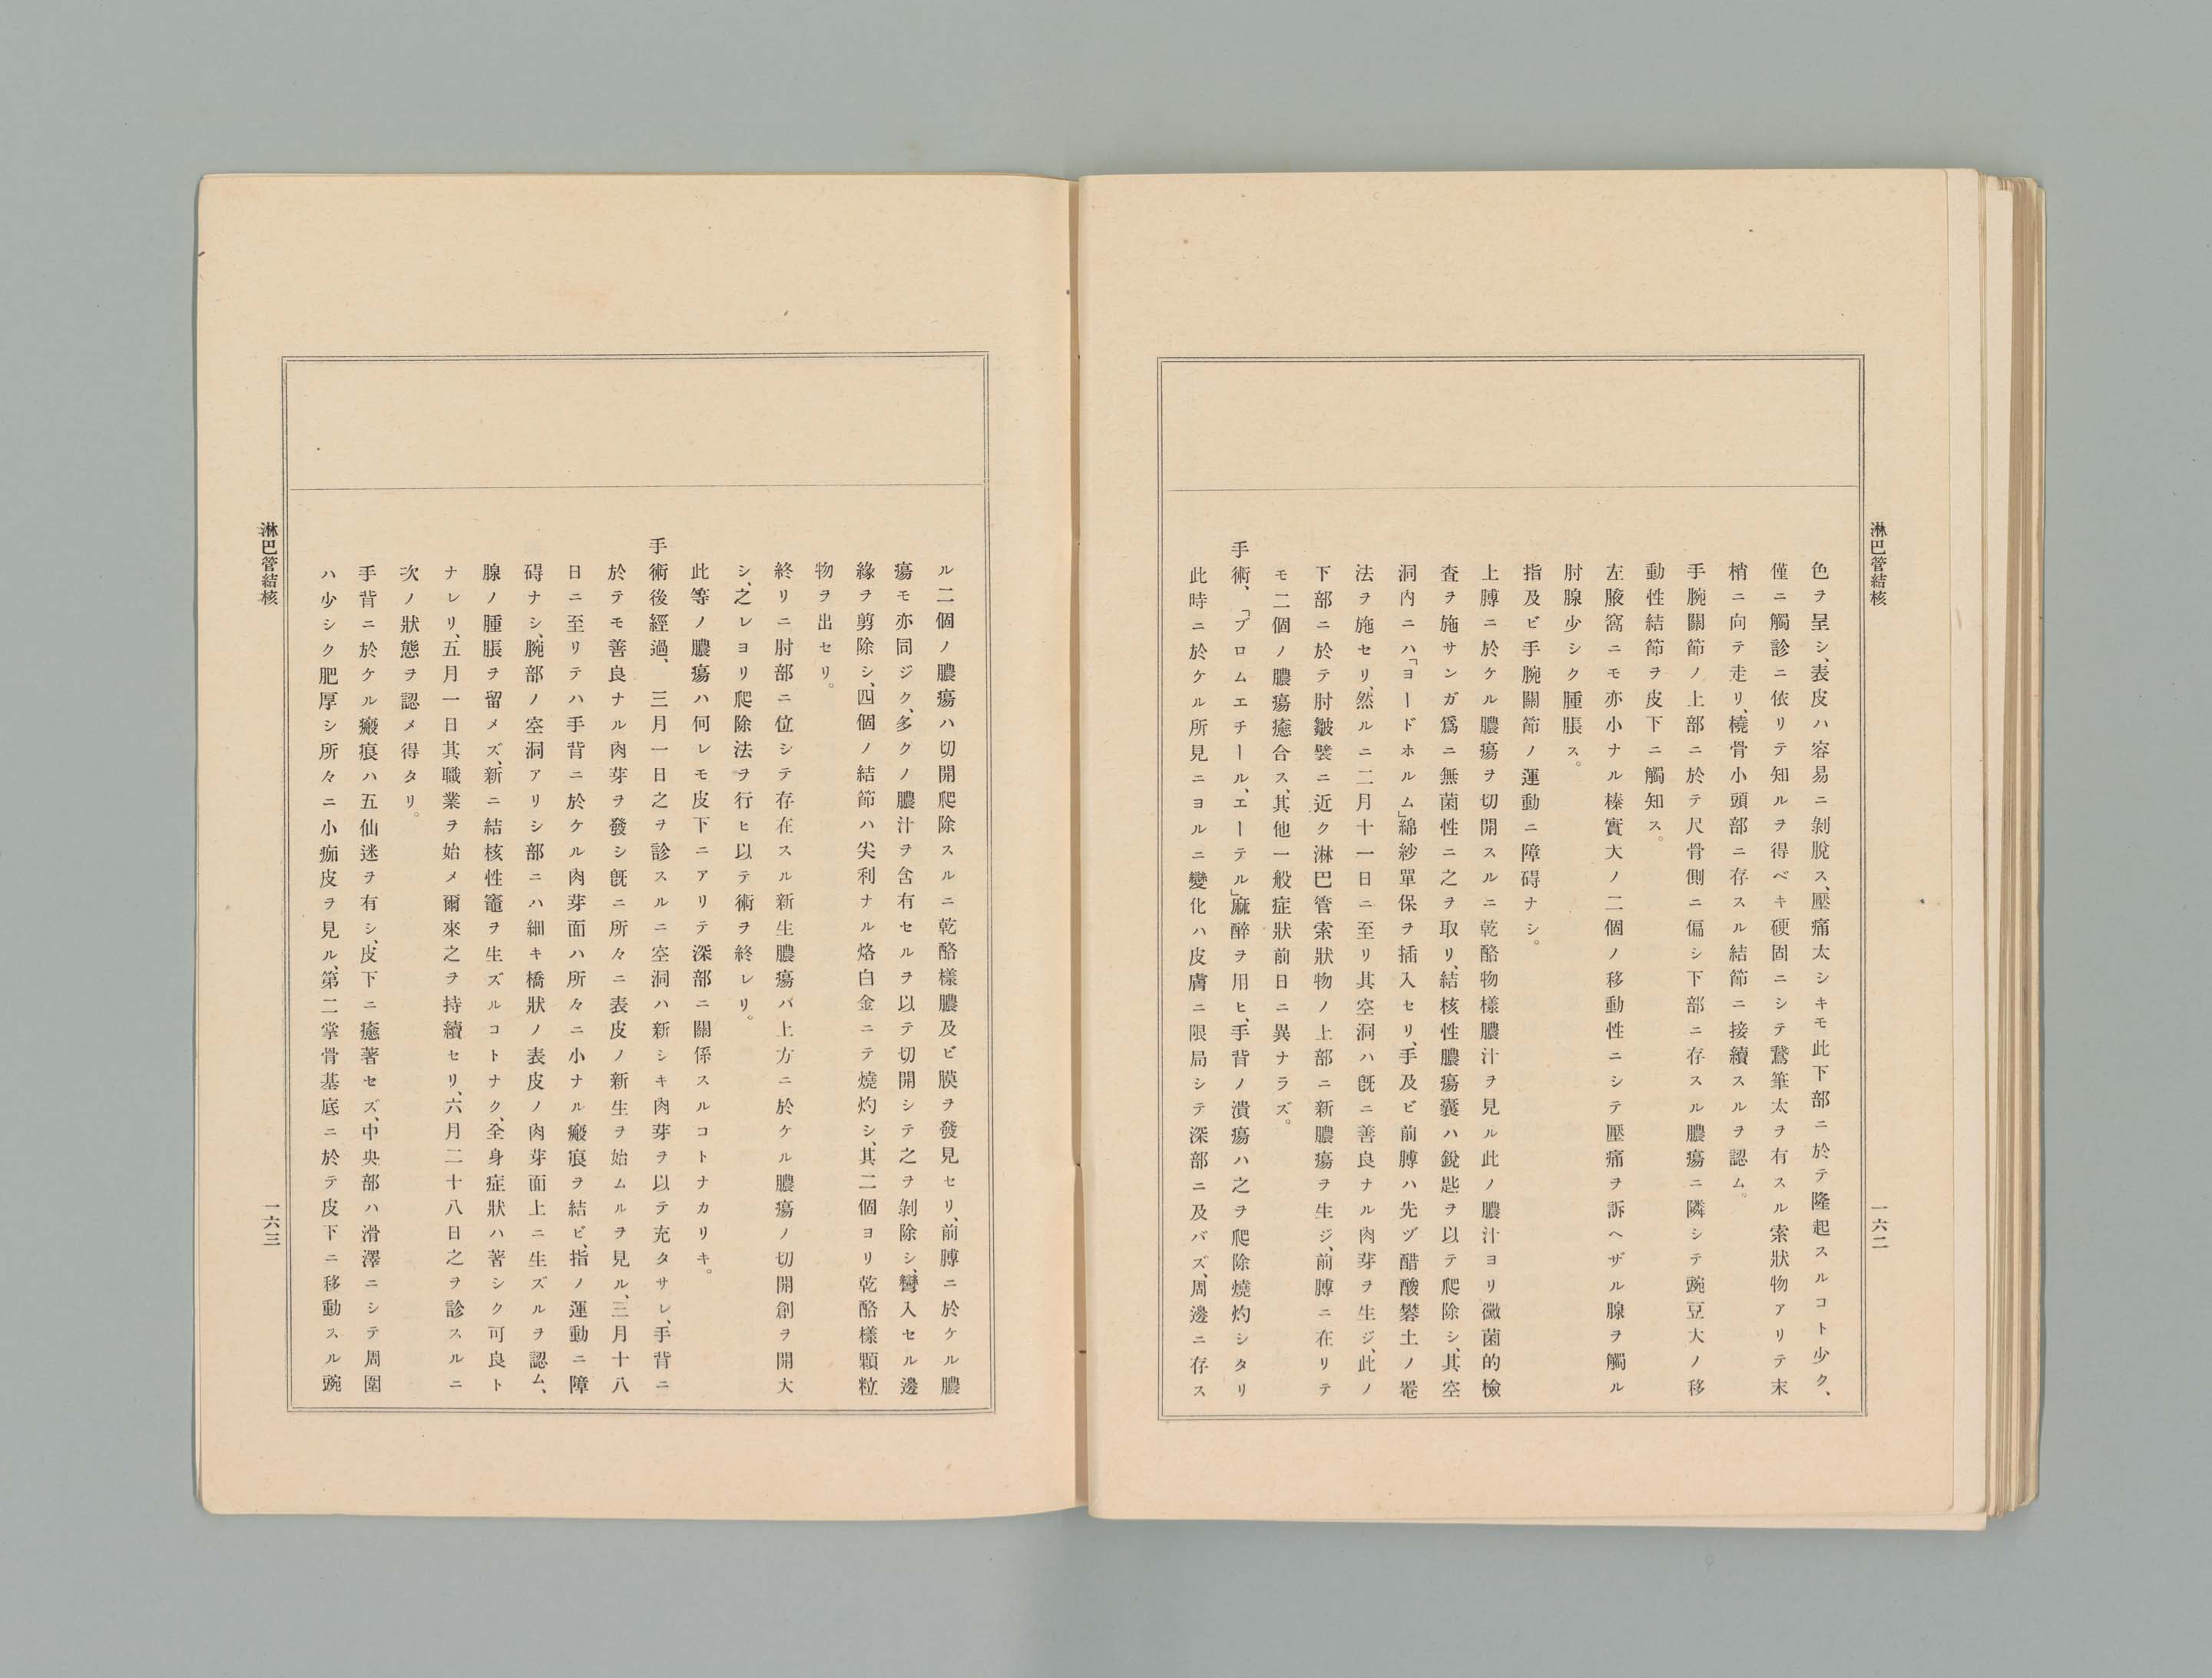 淋巴管結核
一六二
色ヲ呈シ、表皮ハ容易ニ剝脫ス、壓痛太シキモ此下部ニ於テ隆起スルコト少ク、
僅ニ觸診ニ依リテ知ルヲ得ベキ硬固ニシテ鵞筆太ヲ有スル索狀物アリテ末
梢ニ向テ走リ、橈骨小頭部ニ存スル結節ニ接續スルヲ認ム。
手腕關節ノ上部ニ於テ尺骨側ニ偏シ下部ニ存スル膿瘍ニ隣シテ豌豆大ノ移
動性結節ヲ皮下ニ觸知ス。
左腋窩ニモ亦小ナル榛實大ノ二個ノ移動性ニシテ壓痛ヲ訴ヘザル腺ヲ觸ル
肘腺少シク腫脹ス。
指及ビ手腕關節ノ運動ニ障碍ナシ。
上膊ニ於ケル膿瘍ヲ切開スルニ乾酪物樣膿汁ヲ見ル此ノ膿汁ヨリ黴菌的檢
査ヲ施サンガ爲ニ無菌性ニ之ヲ取リ、結核性膿瘍囊ハ銳匙ヲ以テ爬除シ、其空
洞內ニハ「ヨードホルム」綿紗單保ヲ插入セリ、手及ビ前膊ハ先ヅ醋酸礬土ノ罨
法ヲ施セリ、然ルニ二月十一日ニ至リ其空洞ハ既ニ善良ナル肉芽ヲ生ジ、此ノ
下部ニ於テ肘皺襞ニ近ク淋巴管索狀物ノ上部ニ新膿瘍ヲ生ジ、前膊ニ在リテ
モ二個ノ膿瘍癒合ス、其他一般症狀前日ニ異ナラズ。
手術、「ブロムエチール、エーテル」麻醉ヲ用ヒ、手背ノ潰瘍ハ之ヲ爬除燒灼シタリ
此時ニ於ケル所見ニヨルニ變化ハ皮膚ニ限局シテ深部ニ及バズ、周邊ニ存ス
ル二個ノ膿瘍ハ切開爬除スルニ乾酪樣膿及ビ膜ヲ發見セリ、前膊ニ於ケル膿
瘍モ亦同ジク、多クノ膿汁ヲ含有セルヲ以テ切開シテ之ヲ剝除シ、彎入セル邊
緣ヲ剪除シ、四個ノ結節ハ尖利ナル烙白金ニテ燒灼シ、其二個ヨリ乾酪樣顆粒
物ヲ出セリ。
終リニ肘部ニ位シテ存在スル新生膿瘍バ上方ニ於ケル膿瘍ノ切開創ヲ開大
シ、之レヨリ爬除法ヲ行ヒ以テ術ヲ終レリ。
此等ノ膿瘍ハ何レモ皮下ニアリテ深部ニ關係スルコトナカリキ。
手術後經過、三月一日之ヲ診スルニ空洞ハ新シキ肉芽ヲ以テ充タサレ、手背ニ
於テモ善良ナル肉芽ヲ發シ既ニ所々ニ表皮ノ新生ヲ始ムルヲ見ル、三月十八
日ニ至リテハ手背ニ於ケル肉芽面ハ所々ニ小ナル瘢痕ヲ結ビ、指ノ運動ニ障
碍ナシ、腕部ノ空洞アリシ部ニハ細キ橋狀ノ表皮ノ肉芽面上ニ生ズルヲ認ム、
腺ノ腫脹ヲ留メズ、新ニ結核性竈ヲ生ズルコトナク、全身症狀ハ著シク可良ト
ナレリ、五月一日其職業ヲ始メ爾來之ヲ持續セリ、六月二十八日之ヲ診スルニ
次ノ狀態ヲ認メ得タリ。
手背ニ於ケル瘢痕ハ五仙迷ヲ有シ、皮下ニ癒著セズ、中央部ハ滑澤ニシテ周圍
ハ少シク肥厚シ所々ニ小痂皮ヲ見ル、第二掌骨基底ニ於テ皮下ニ移動スル豌
淋巴管結核
一六三